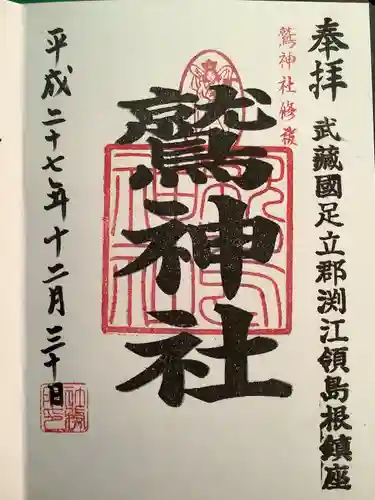 奉拝
武藏國足立郡渕江領島根鎮座
鷲神社修復
鷲神社
平成二十七年十二月三十日